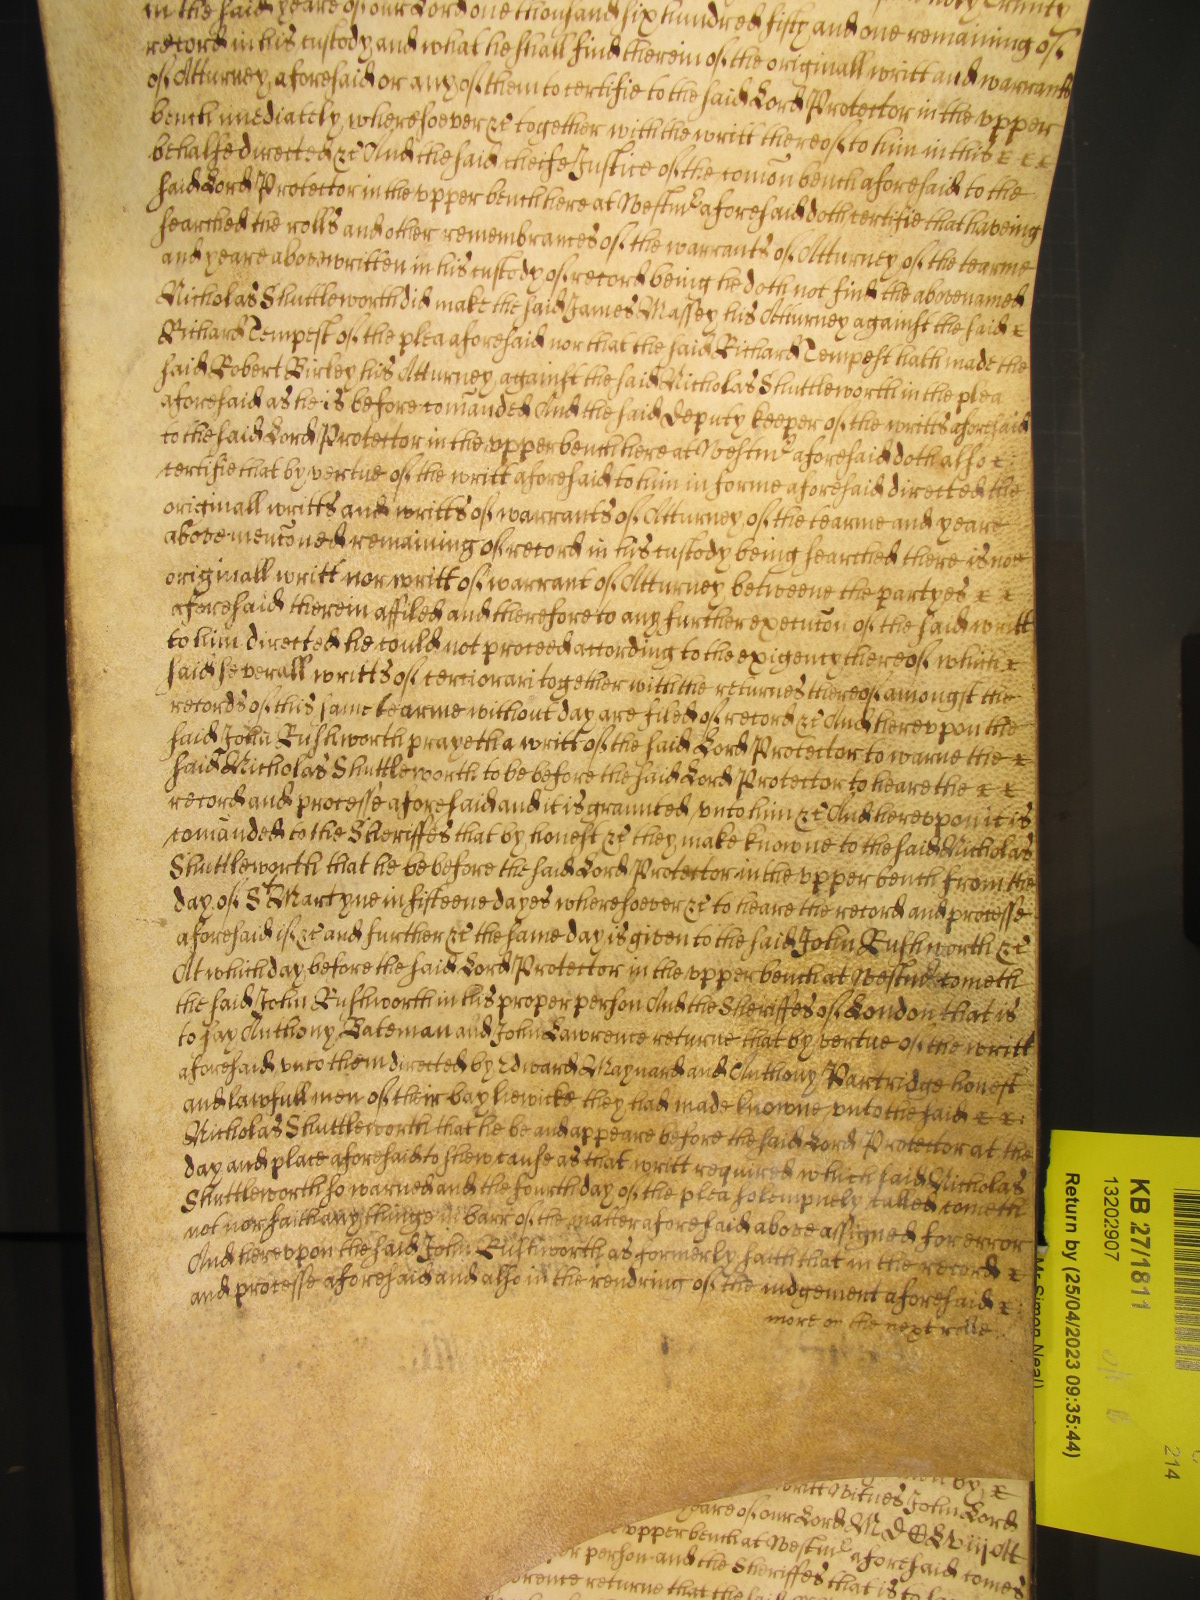 in the said yeare of our Lord one thousand six hundred fifty and one remaining of
record in his custody and what he shall find therein of the originall writt and warrants
of Atturney aforesaid or any of them to certifie to the said Lord Protector in the vpper
bench imediately wheresoever &c together with the writt thereof to him in this
behalfe directed &c And the said cheife Justice of the comōn bench aforesaid to the
said Lord Protector in the vpper bench here at Westmr aforesaid doth certifie that haveing
searched the rolls and other remembrances of the warrants of Atturney of the tearme
and yeare abovewritten in his custody of record being he doth not find the abovenamed
Nicholas Shuttleworth did make the said James Massey his Atturney against the said
Richard Tempest of the plea aforesaid nor that the said Richard Tempest hath made the
said Robert Birley his Atturney against the said Nicholas Shuttleworth in the plea
aforesaid as he is before comānded And the said deputy keeper of the writts aforesaid
to the said Lord Protector in the vpper bench here at Westmr aforesaid doth also
certifie that by vertue of the writt aforesaid to him in forme aforesaid directed the
originall writts and writts of warrants of Atturney of the tearme and yeare
above mencōned remaining of record in his custody being searched there is noe
originall writt nor writt of warrant of Atturney betweene the partyes
aforesaid therein affiled and therefore to any further execucōn of the said writt
to him directed he could not proceed according to the exigency thereof which
said severall writts of cerciorari together with the returnes thereof amongst the
records of this same tearme without day are filed of record &c And herevpon the
said John Rushworth prayeth a writt of the said Lord Protector to warne the
said Nicholas Shuttleworth to be before the said Lord Protector to heare the
record and processe aforesaid and it is graunted vnto him &c And herevpon it is
comānded to the Sheriffes that by honest &c they make knowne to the said Nicholas
Shuttleworth that he be before the said Lord Protector in the vpper bench from the
day of St Martyne in fifteene dayes wheresoever &c to heare the record and processe
aforesaid if &c and further &c the same day is given to the said John Rushworth &c
At which day before the said Lord Protector in the vpper bench at Westmr cometh
the said John Rushworth in his proper person And the Sheriffes of London that is
to say Anthony Bateman and John Lawrence returne that by vertue of the writt
aforesaid vnto them directed by Edward Maynard and Anthony Partridge honest
and lawfull men of their bayliewicke they had made knowne vnto the said
Nicholas Shuttleworth that he be and appeare before the said Lord Protector at the
day and place aforesaid to shew cause as that writt required which said Nicholas
Shuttleworth so warned and the fourth day of the plea solempnely called cometh
not nor saith any thinge in barr of the matter aforesaid above assigned for error
And herevpon the said John Rushworth as formerly saith that in the record
and processe aforesaid and also in the rendring of the iudgement aforesaid
more on the next rolle
writt Witnes John Lord
yeare of our Lord
vpper bench at Westmr aforesaid comes
person and the Sheriffes that is to
returne that the said
KB 27/1811
13202907
Return by (25/04/2023 09:35:44)
Mr Simon Neal)
214